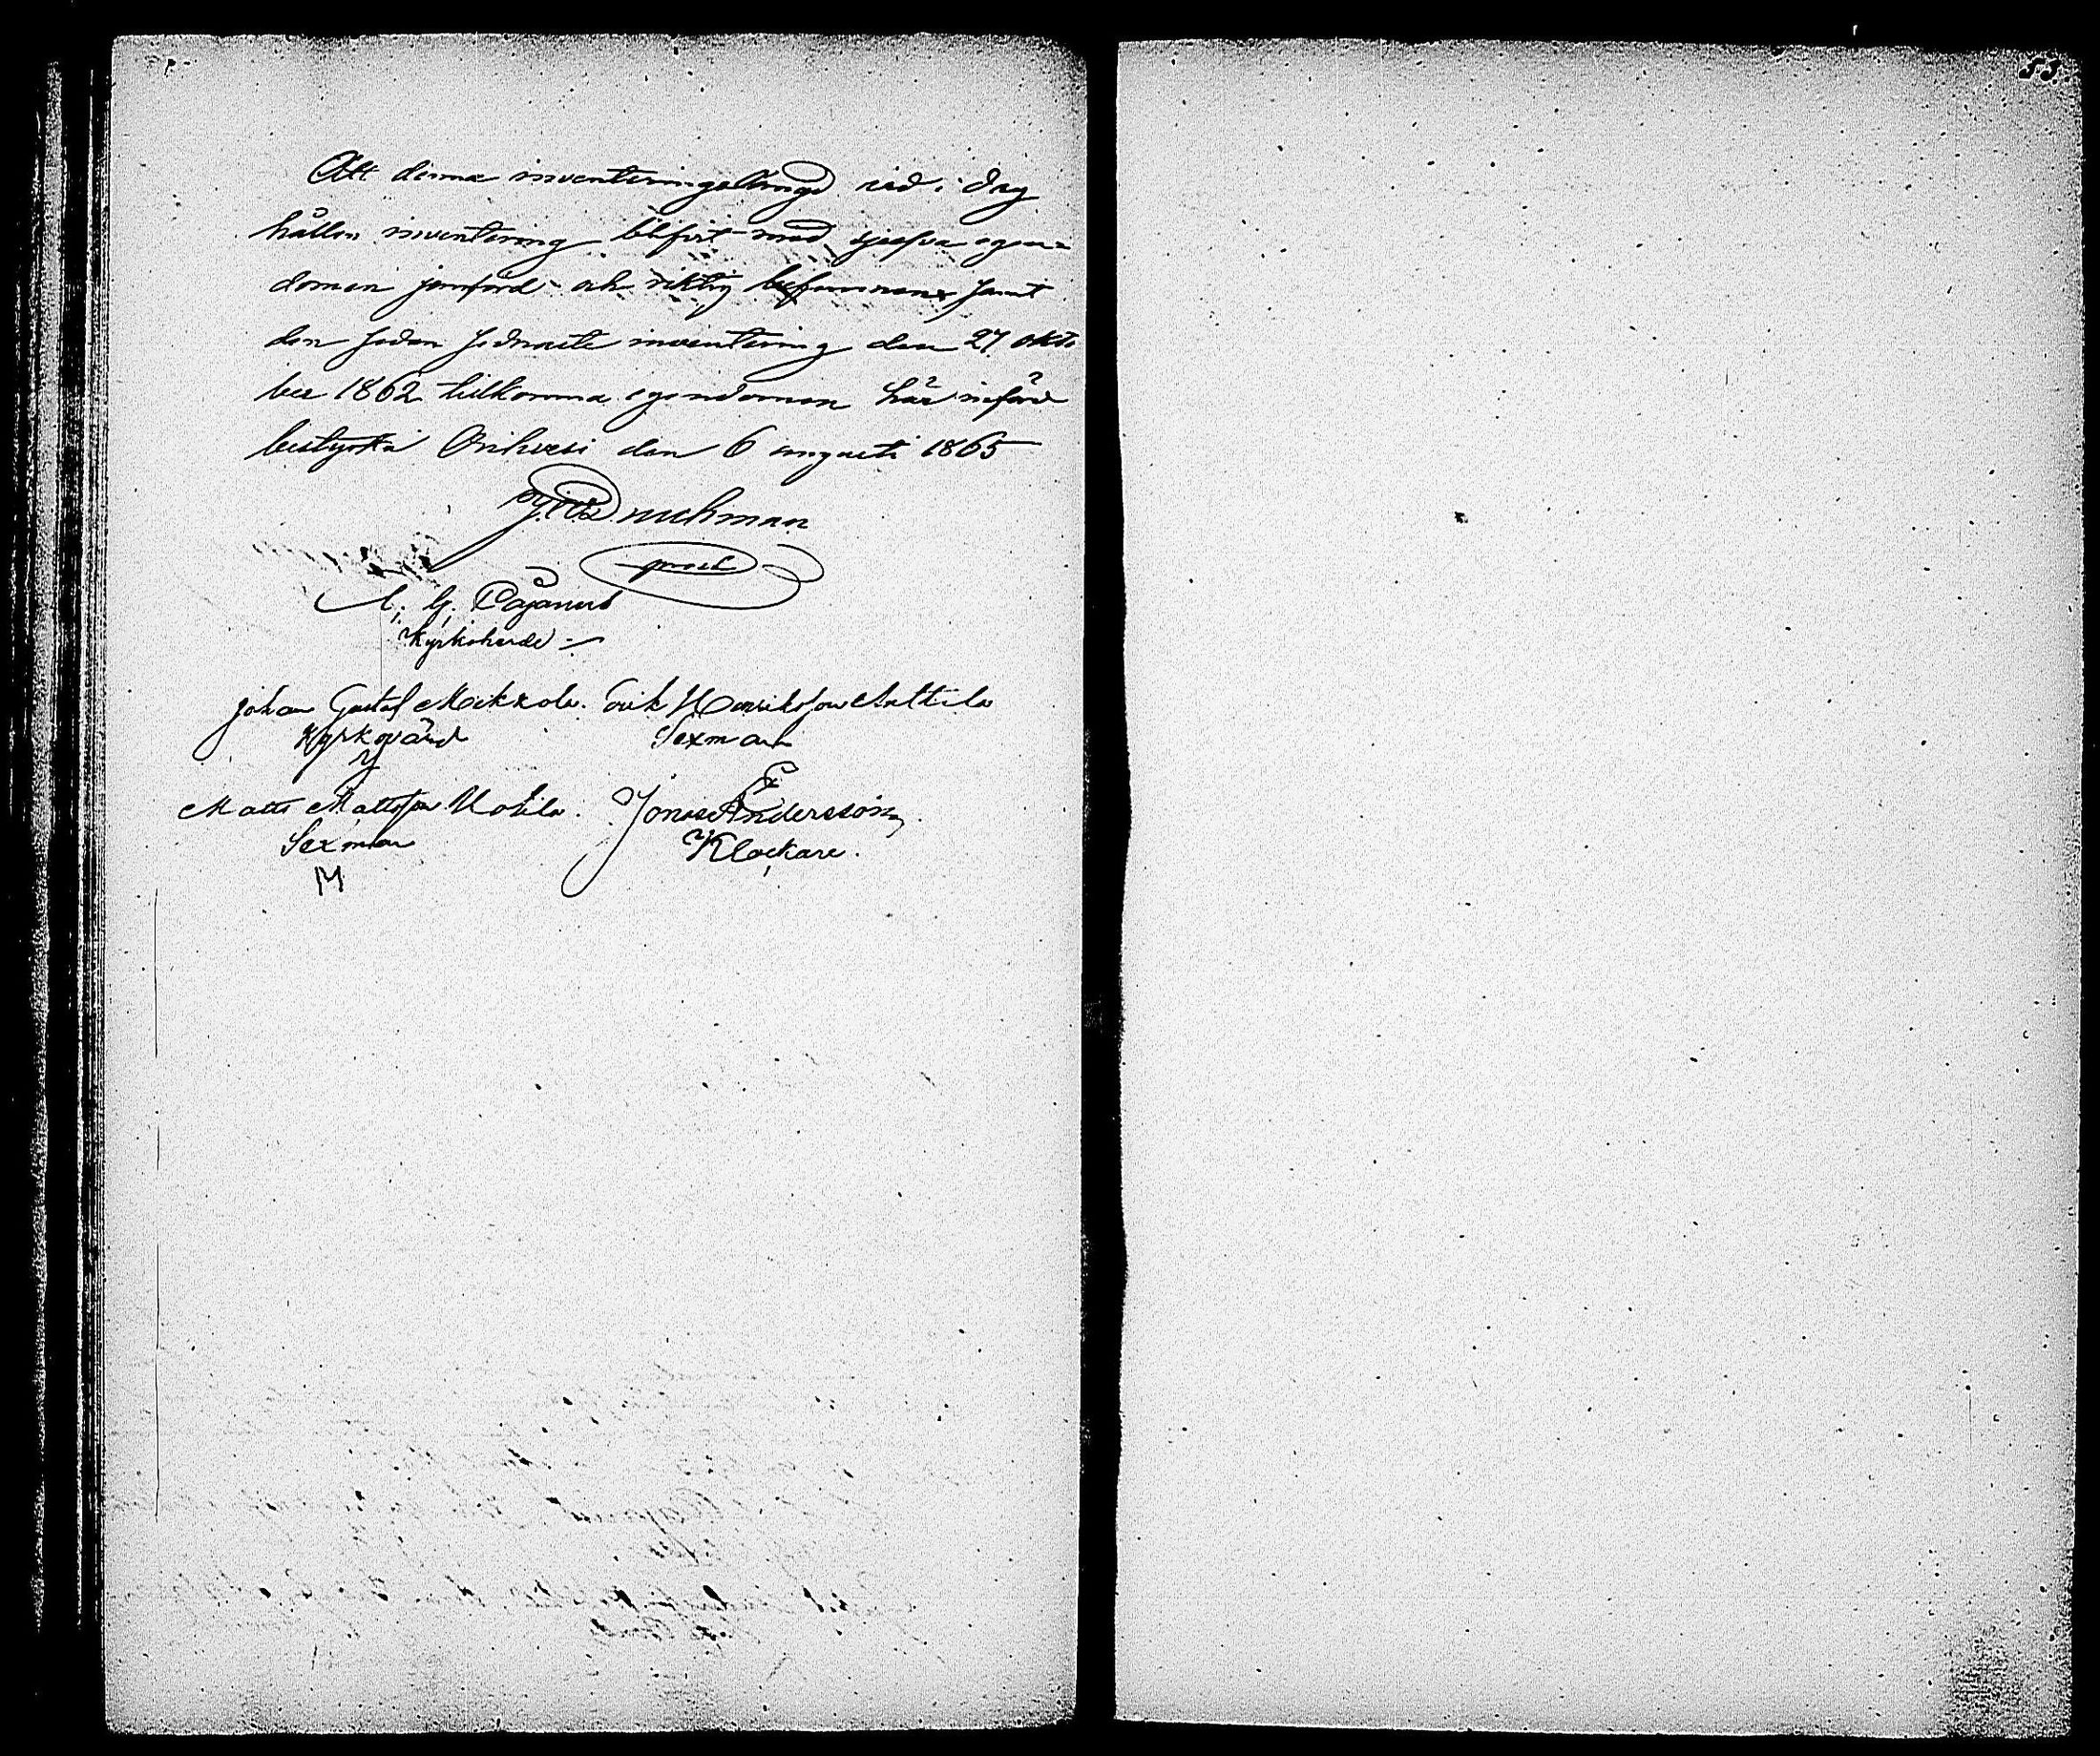 53.
Att denna inventeringslängd vid i dag
hållen inventering blifvit med sjelfva egen-
domen jemförd och riktig befunnen samt
den sedan sednaste inventering den 27 okto
ber 1862 tillkomna egendomen här införd
bestyrka Orihvesi den 6 augusti 1865
prost
G. Pajanus
Kyrkoherde
Johan Gustaf Mickola. Erik Henriksson Anttila
Kyrkovärd Sexman
Matts Mattsson Uotila. Jonas Andersson
Sexman Klockare.
M